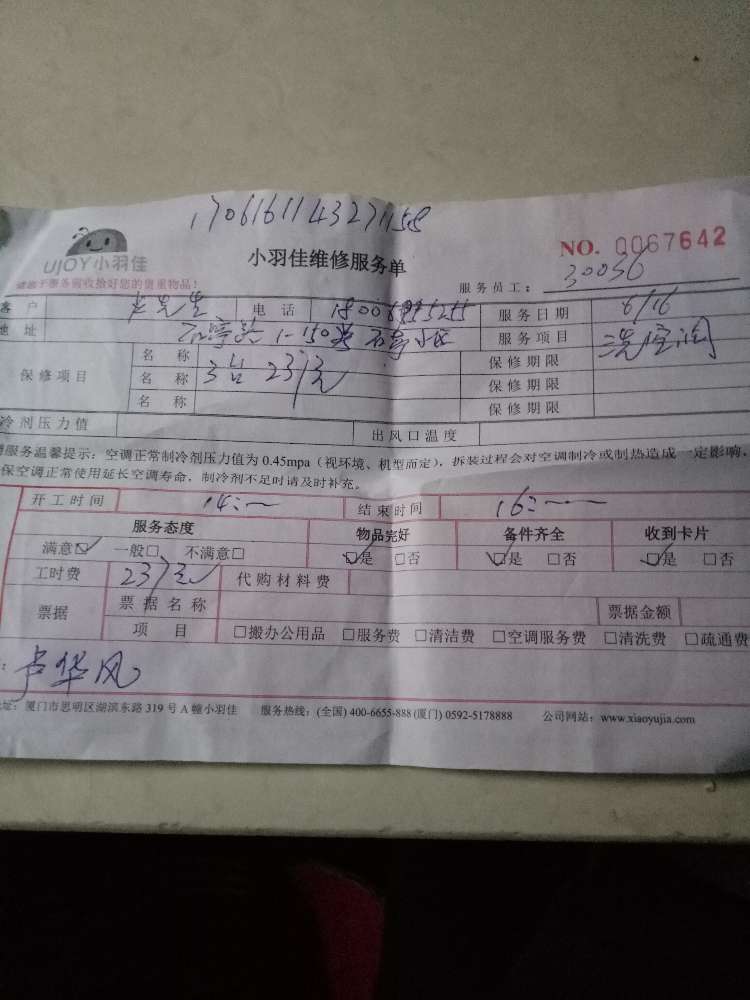 1706161143271158
UJOY小羽佳
小羽佳维修服务单
NO. 0067642
请您于服务前收拾好您的贵重物品!
服务员工: 30036
客 户 卢先生 电 话 服务日期 6/16
地 址 服务项目 洗空调
保修项目 名 称 保修期限
名 称 3台 237元 保修期限
名 称 保修期限
冷剂压力值 出风口温度
服务温馨提示:空调正常制冷剂压力值为0.45mpa(视环境、机型而定),拆装过程会对空调制冷或制热造成一定影响,
保空调正常使用延长空调寿命,制冷剂不足时请及时补充。
开工时间 14: 结束时间 16:
服务态度 物品完好 备件齐全 收到卡片
满意☑ 一般□ 不满意□ ☑是 □否 ☑是 □否 ☑是 □否
工时费 237元 代购材料费
票据 票据名称 票据金额
项 目 □搬办公用品 □服务费 □清洁费 □空调服务费 □清洗费 □疏通费
: 卢华风
址:厦门市思明区湖滨东路319号A幢小羽佳 服务热线:(全国)400-6655-888(厦门)0592-5178888 公司网站:www.xiaoyujia.com